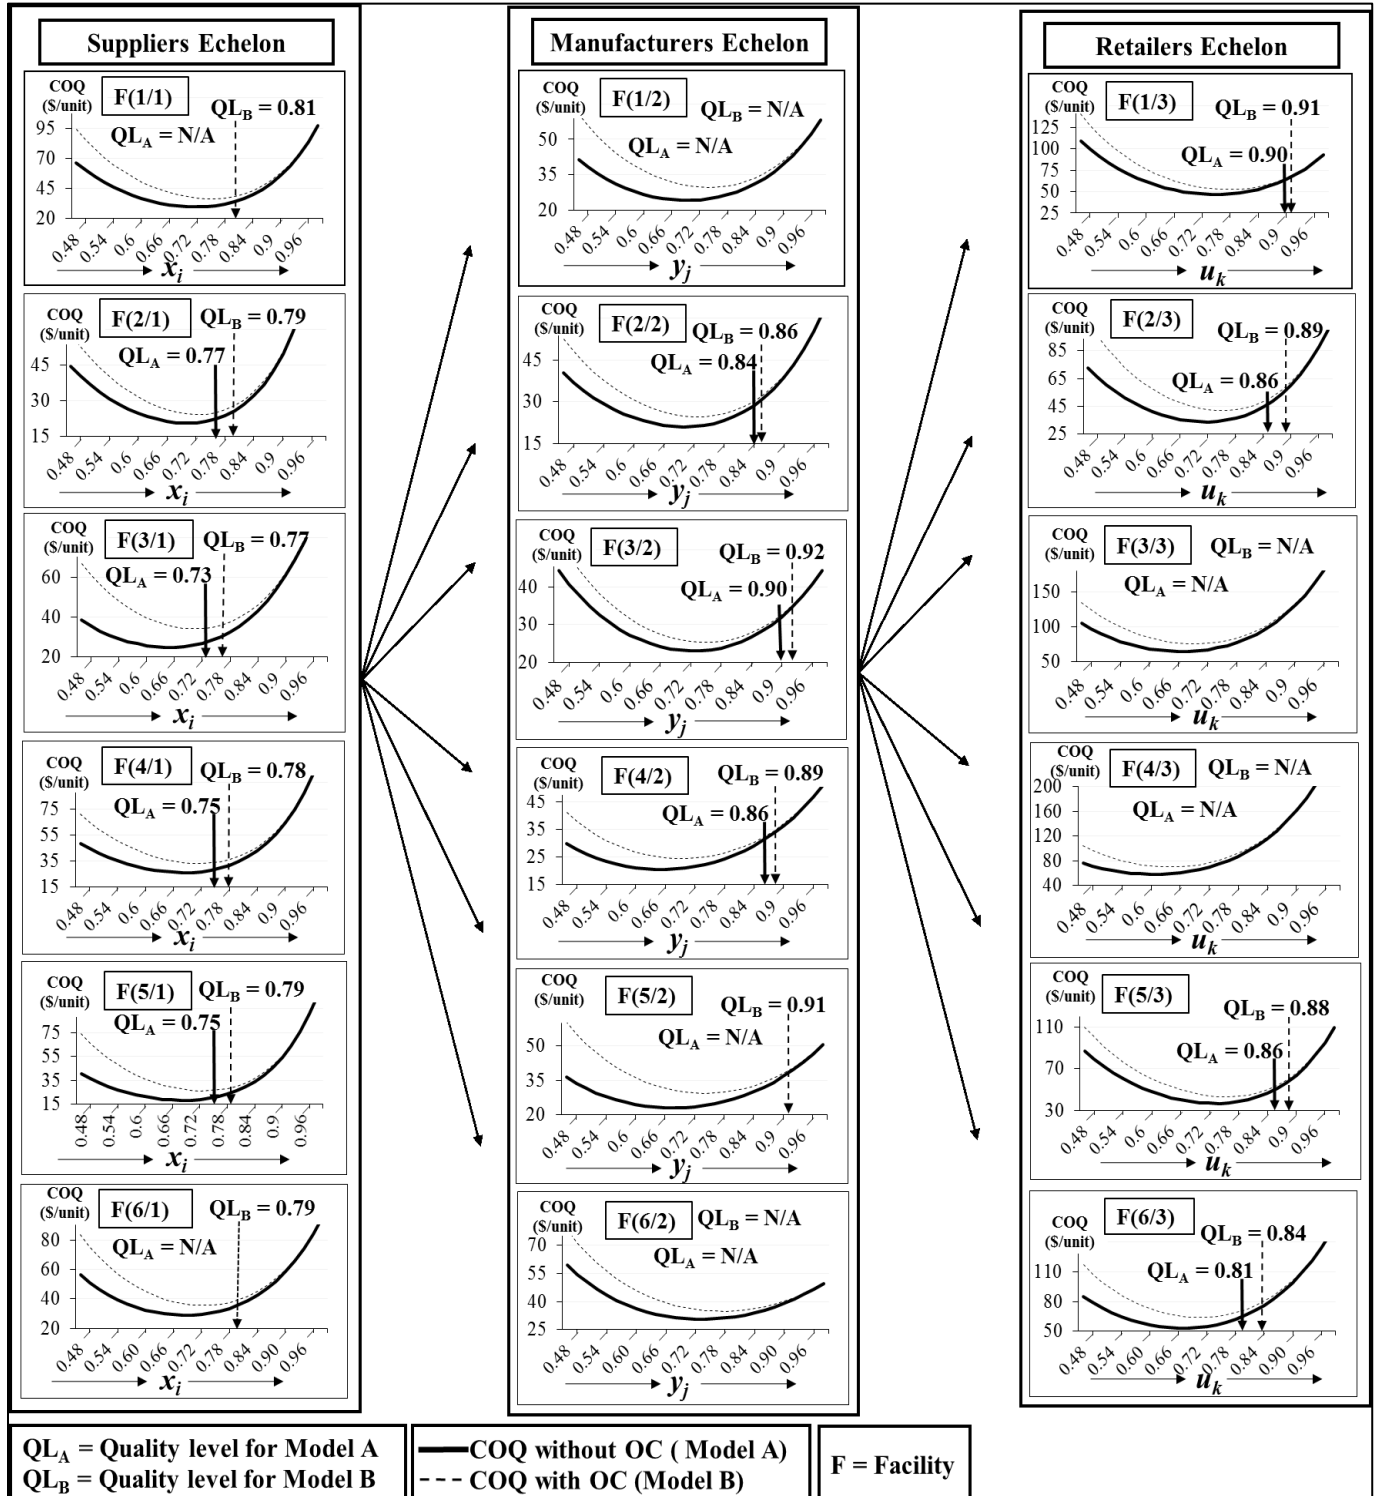 Suppliers Echelon
COQ
($/unit)
F(1/1)
QL_B = 0.81
QL_A = N/A
95
70
45
20
0.48 0.54 0.6 0.66 0.72 0.78 0.84 0.9 0.96
x_i
COQ
($/unit)
F(2/1)
QL_B = 0.79
QL_A = 0.77
45
30
15
0.48 0.54 0.6 0.66 0.72 0.78 0.84 0.9 0.96
x_i
COQ
($/unit)
F(3/1)
QL_B = 0.77
QL_A = 0.73
60
40
20
0.48 0.54 0.6 0.66 0.72 0.78 0.84 0.9 0.96
x_i
COQ
($/unit)
F(4/1)
QL_B = 0.78
QL_A = 0.75
75
55
35
15
0.48 0.54 0.6 0.66 0.72 0.78 0.84 0.9 0.96
x_i
COQ
($/unit)
F(5/1)
QL_B = 0.79
QL_A = 0.75
75
55
35
15
0.48 0.54 0.6 0.66 0.72 0.78 0.84 0.9 0.96
x_i
COQ
($/unit)
F(6/1)
QL_B = 0.79
QL_A = N/A
80
60
40
20
0.48 0.54 0.60 0.66 0.72 0.78 0.84 0.90 0.96
x_i
Manufacturers Echelon
COQ
($/unit)
F(1/2)
QL_B = N/A
QL_A = N/A
50
35
20
0.48 0.54 0.6 0.66 0.72 0.78 0.84 0.9 0.96
y_j
COQ
($/unit)
F(2/2)
QL_B = 0.86
QL_A = 0.84
45
30
15
0.48 0.54 0.6 0.66 0.72 0.78 0.84 0.9 0.96
y_j
COQ
($/unit)
F(3/2)
QL_B = 0.92
QL_A = 0.90
40
30
20
0.48 0.54 0.6 0.66 0.72 0.78 0.84 0.9 0.96
y_j
COQ
($/unit)
F(4/2)
QL_B = 0.89
QL_A = 0.86
45
35
25
15
0.48 0.54 0.6 0.66 0.72 0.78 0.84 0.9 0.96
y_j
COQ
($/unit)
F(5/2)
QL_B = 0.91
QL_A = N/A
50
35
20
0.48 0.54 0.6 0.66 0.72 0.78 0.84 0.9 0.96
y_j
COQ
($/unit)
F(6/2)
QL_B = N/A
QL_A = N/A
70
55
40
25
0.48 0.54 0.60 0.66 0.72 0.78 0.84 0.90 0.96
y_j
Retailers Echelon
COQ
($/unit)
F(1/3)
QL_B = 0.91
QL_A = 0.90
125
100
75
50
25
0.48 0.54 0.6 0.66 0.72 0.78 0.84 0.9 0.96
u_k
COQ
($/unit)
F(2/3)
QL_B = 0.89
QL_A = 0.86
85
65
45
25
0.48 0.54 0.6 0.66 0.72 0.78 0.84 0.9 0.96
u_k
COQ
($/unit)
F(3/3)
QL_B = N/A
QL_A = N/A
150
100
50
0.48 0.54 0.6 0.66 0.72 0.78 0.84 0.9 0.96
u_k
COQ
($/unit)
F(4/3)
QL_B = N/A
QL_A = N/A
200
160
120
80
40
0.48 0.54 0.6 0.66 0.72 0.78 0.84 0.9 0.96
u_k
COQ
($/unit)
F(5/3)
QL_B = 0.88
QL_A = 0.86
110
70
30
0.48 0.54 0.6 0.66 0.72 0.78 0.84 0.9 0.96
u_k
COQ
($/unit)
F(6/3)
QL_B = 0.84
QL_A = 0.81
110
80
50
0.48 0.54 0.60 0.66 0.72 0.78 0.84 0.90 0.96
u_k
QL_A = Quality level for Model A
QL_B = Quality level for Model B
COQ without OC ( Model A)
COQ with OC (Model B)
F = Facility